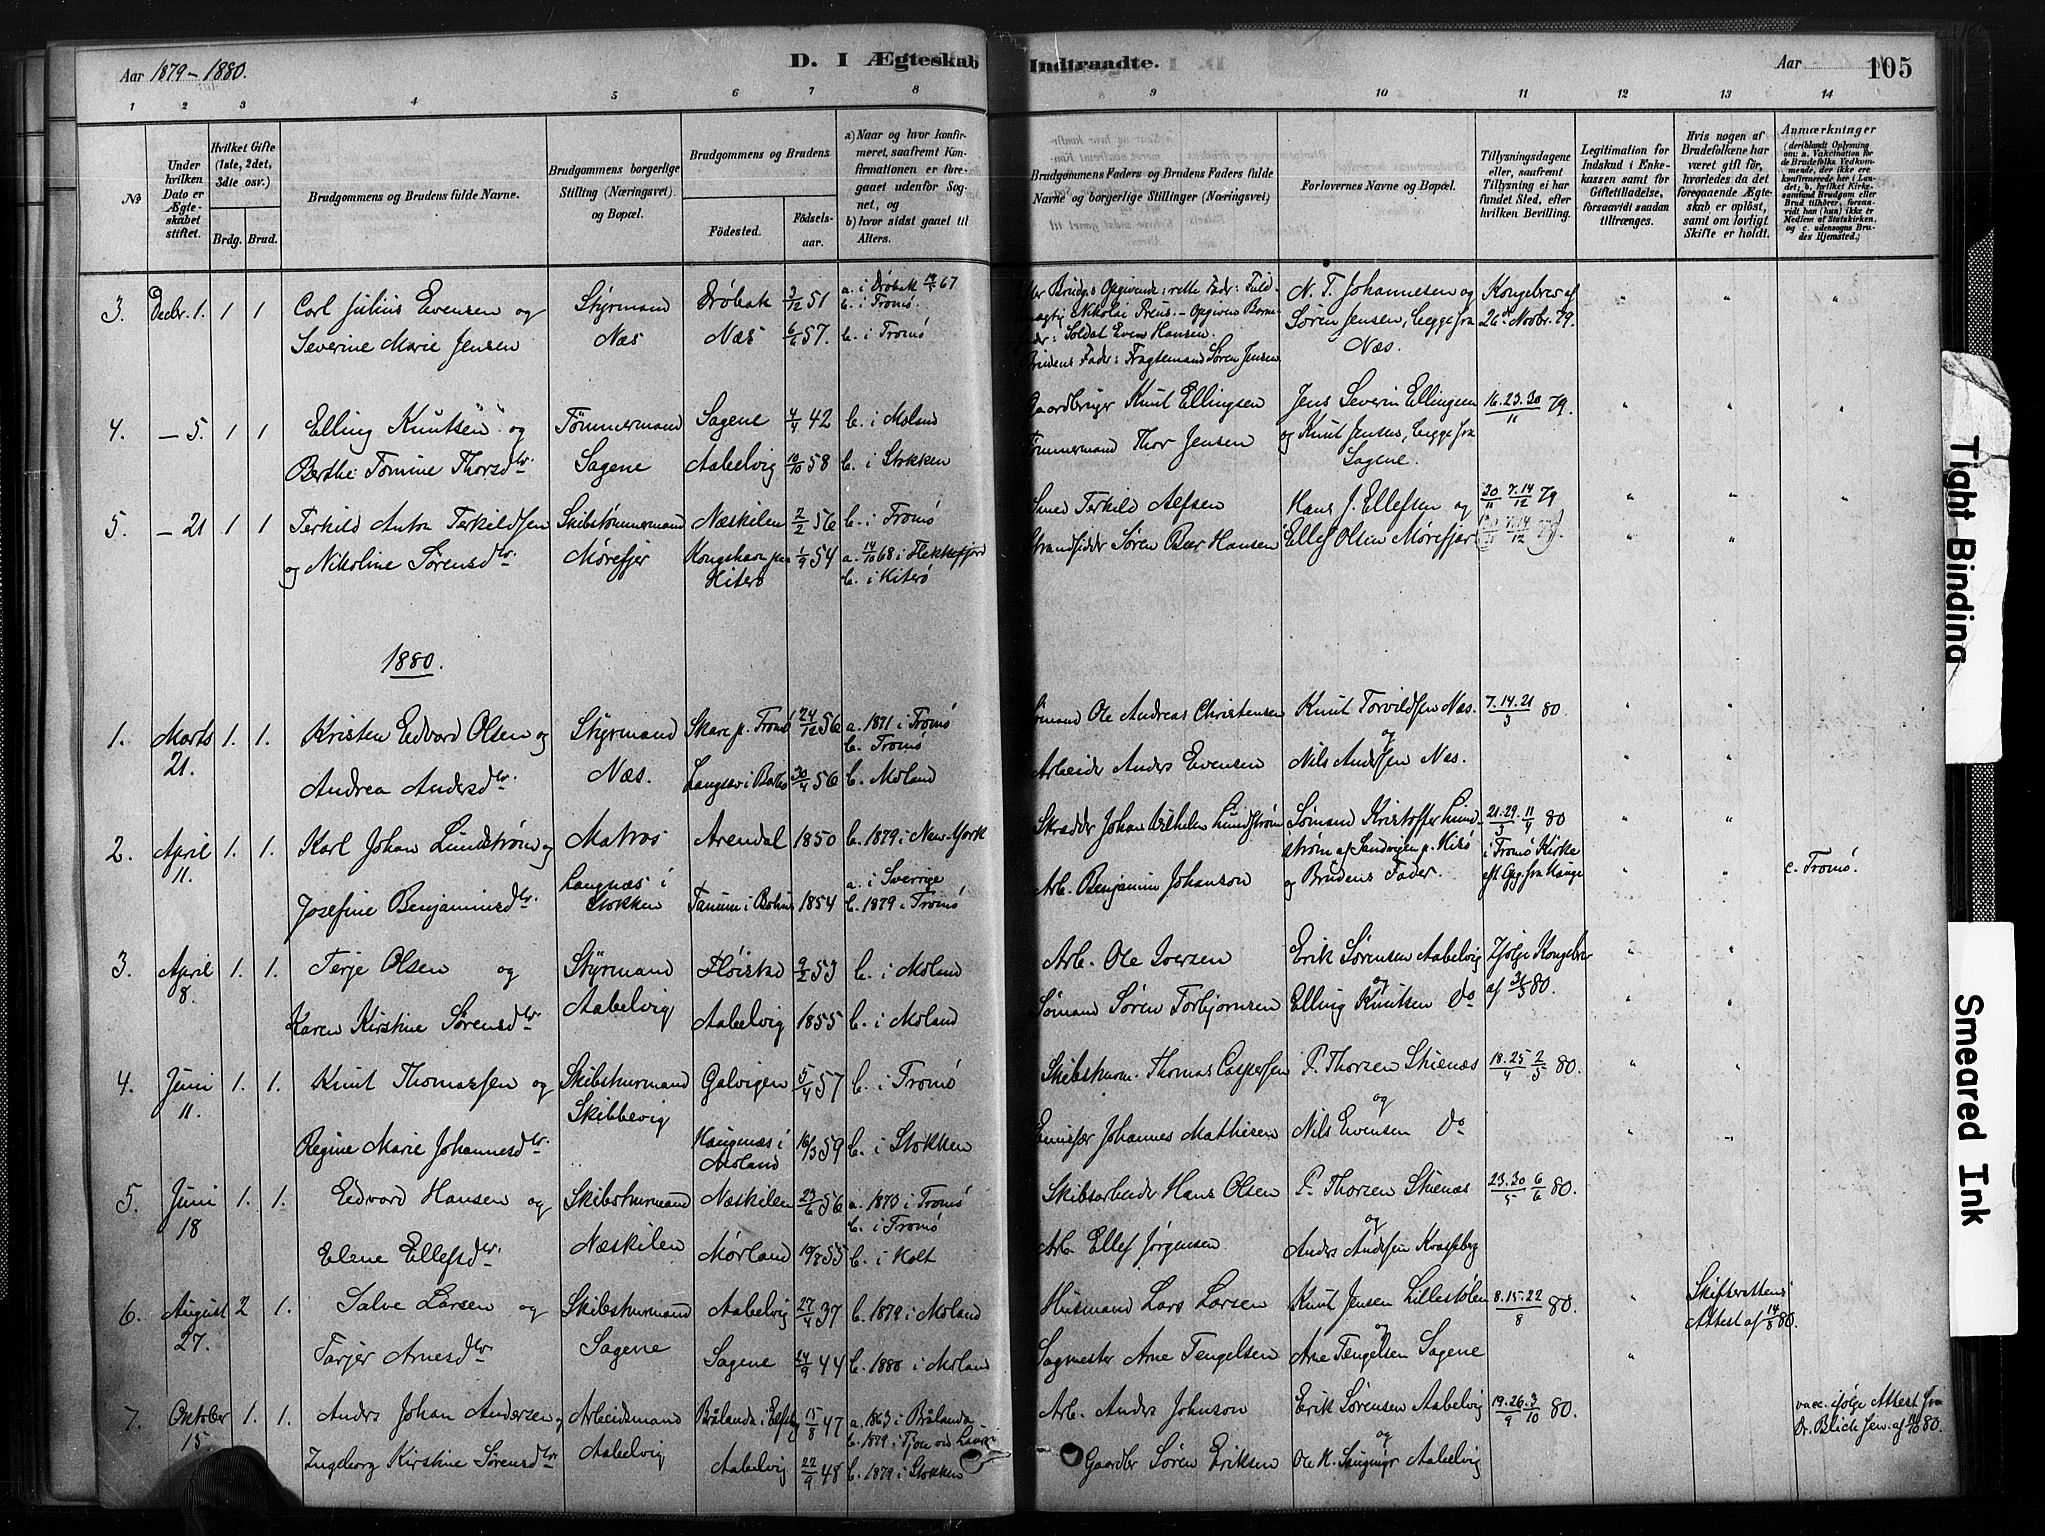 Aar 1879-1880.
D. I Ægteskab Indtraadte.
Aar
105
1 2 3 4 5 6 7 8 9 10 11 12 13 14
No
Under hvilken Dato er Ægteskabet stiftet.
Hvilket Gifte (1ste, 2det, 3dte osv.)
Brdg. Brud.
Brudgommens og Brudens fulde Navne.
Brudgommens borgerlige Stilling (Næringsvei) og Bopæl.
Brudgommens og Brudens
Födested. Födselsaar.
a) Naar og hvor konfirmeret, saafremt Konfirmationen er foregaaet udenfor Sognet, og
b) hvor sidst ganet til Alters.
Brudgommens Faders og Brudens Faders fulde Navne og borgerlige Stillinger (Næringsvei)
Forlovernes Navne og Bopæl.
Tillysningsdagene eller, saafremt Tillysning ei har fundet Sted, efter hvilken Bevilling.
Legitimation for Indskud i Enkekassen samt for Giftetilladelse, forsaavidt saadan tiltrænges.
Hvis nogen af Brudefolkene har været gift för, hvorledes da det foregaaende Ægteskab er oplöst, samt om lovligt Skifte er holdt.
Anmærkninger (deriblandt Oplysning om: a. Vakcination for de Brudefolks Vedkommende, der ikke ere konfirmerede her i Landet; b. hvilket Kirkesamfund Brudgom eller Brud tilhörer, forsaavidt han (hun) ikke er Medlem af Statskirken, og c. udensogns Brudes Hjemsted.)
3. Decbr. 1. 1 1 Carl Julius Evensen og Styrmand Drøbak 3/12 51 a. i Drøbak 67 b. i Tromø Brudgs Opgivende: rette Fader: Nikolai Preus. - Opgiven Fader: Soldat Even Hansen. N. T. Johannesen og Søren Jensen, begge fra Næs. Kongebrev af 26de Novbr. 79.
Severine Marie Jensen Næs Næs 6/6 57. b. i Tromø Brudens Fader: Fragtemand Søren Jensen
4. - 5. 1 1 Elling Knutsen og Tømmermand Sagene 4/4 42 b. i Moland Gaardbruger Knut Ellingsen Jens Severin Ellingsen og Knut Jensen, begge fra Sagene. 16. 23. 30/11 79.
Berthe Tomine Thorsdtr. Sagene Aabelvig 10/10 58 b. i Stokken Tømmermand Thor Jensen
5. - 21 1 1 Terkild Anton Terkildsen Skibstømmermand Næskilen 2/2 56 b. i Tromø Smed Terkild Alfsen Hans J. Ellefsen og 30/11 7. 14/12 79
og Nikoline Sørensdtr. Mørefjer Kongshavn paa Hiterø 1/9 54 a. 14/10 68 i Flekkefjord b. i Hiterø Strandsidder Søren Hansen Ellef Olsen Mørefjer
1880.
1. Marts 21. 1. 1. Kristen Edvard Olsen og Styrmand Skare p. Tromø 24/12 56 a. 1871 i Tromø b. Tromø Sømand Ole Andreas Christensen Knut Torvildsen Næs. og 7. 14. 21/3 80
Andrea Andersdtr. Næs. 30/4 56 b. Moland Arbeider Anders Evensen Nils Andersen Næs.
2. April 11. 1. 1. Karl Johan Lundstrøm og Matros Arendal 1850 b. 1879 i New-York Skrædder Johan Wilhelm Lundstrøm Sømand Kristoffer Lundstrøm af Sandvigen p. Hisø 21. 29. 11/4 80 i Tromø Kirke
Josefine Benjaminsdtr. Langnæs i Stokken Tanum i Bohus 1854 a. i Sverrige b. 1879 i Tromø Arb. Benjamin Johanson og Brudens Fader. c. Tromø.
3. April 8. 1. 1. Terje Olsen og Styrmand Fløistad 9/2 53 b. i Moland Arb. Ole Iversen Erik Sørensen Aabelvig og Ifølge Kongebrev af 31/3 80.
Karen Kirstine Sørensdtr. Aabelvig Aabelvig 1855 b. i Moland Sømand Søren Torbjørnsen Elling Knutsen Do
4. Juni 11. 1. 1. Knut Thomassen og Skibstmrmand Galvigen 5/4 57 b. i Tromø Skibstmrm. Thomas Caspersen P. Thorsen Skienæs og 18. 25/4 2/5 80.
Regine Marie Johannesdtr. Skibbevig i Moland 16/3 59 b. i Stokken Johannes Mathisen Nils Evensen Do
5. Juni 18 1. 1. Edvard Hansen og Skibstmrmand Næskilen 56 a. 1873 i Tromø b. i Tromø Skibsarbeider Hans Olsen P. Thorsen Skienæs og 23. 30/5 6/6 80.
Elene Ellefsdtr. Næskilen Mørland 55 b. i Holt Arb. Ellef Jørgensen Anders Andersen
6. August 27. 2 1. Salve Larsen og Skibstmrmand Aabelvig 27/4 37 b. 1879 i Moland Husmand Lars Larsen Knut Jensen Lillestølen og 8. 15. 22/8 80. Skifterettens Attest af 14/8 80.
Tarjer Arnesdtr Sagene Sagene 24/9 44 b. 1880 i Moland Sagmester Arne Tengelsen Arne Tengelsen Sagene
7. Oktober 15 1. 1. Anders Johan Andersen og Arbeidsmand Brålanda i 15/8 47 a. 1863 i Brålanda b. 1879 i Arb. Anders Johnson Erik Sørensen Aabelvig og 19. 26/9 3/10 80. vacc. ifølge Attest fra Dr. Blich jun. af 80.
Ingeborg Kirstine Sørensdtr Aabelvig Aabelvig 22/9 48 b. 1879 i Stokken Gaardbr Søren Eriksen Ole K. Aabelvig
Tight Binding
Smeared Ink